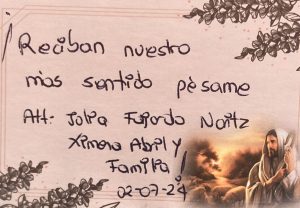 Reciban nuestro
mas sentido pèsame
Att: Julia Fajardo Noitz
Ximena Abril y
Familia
02-07-24